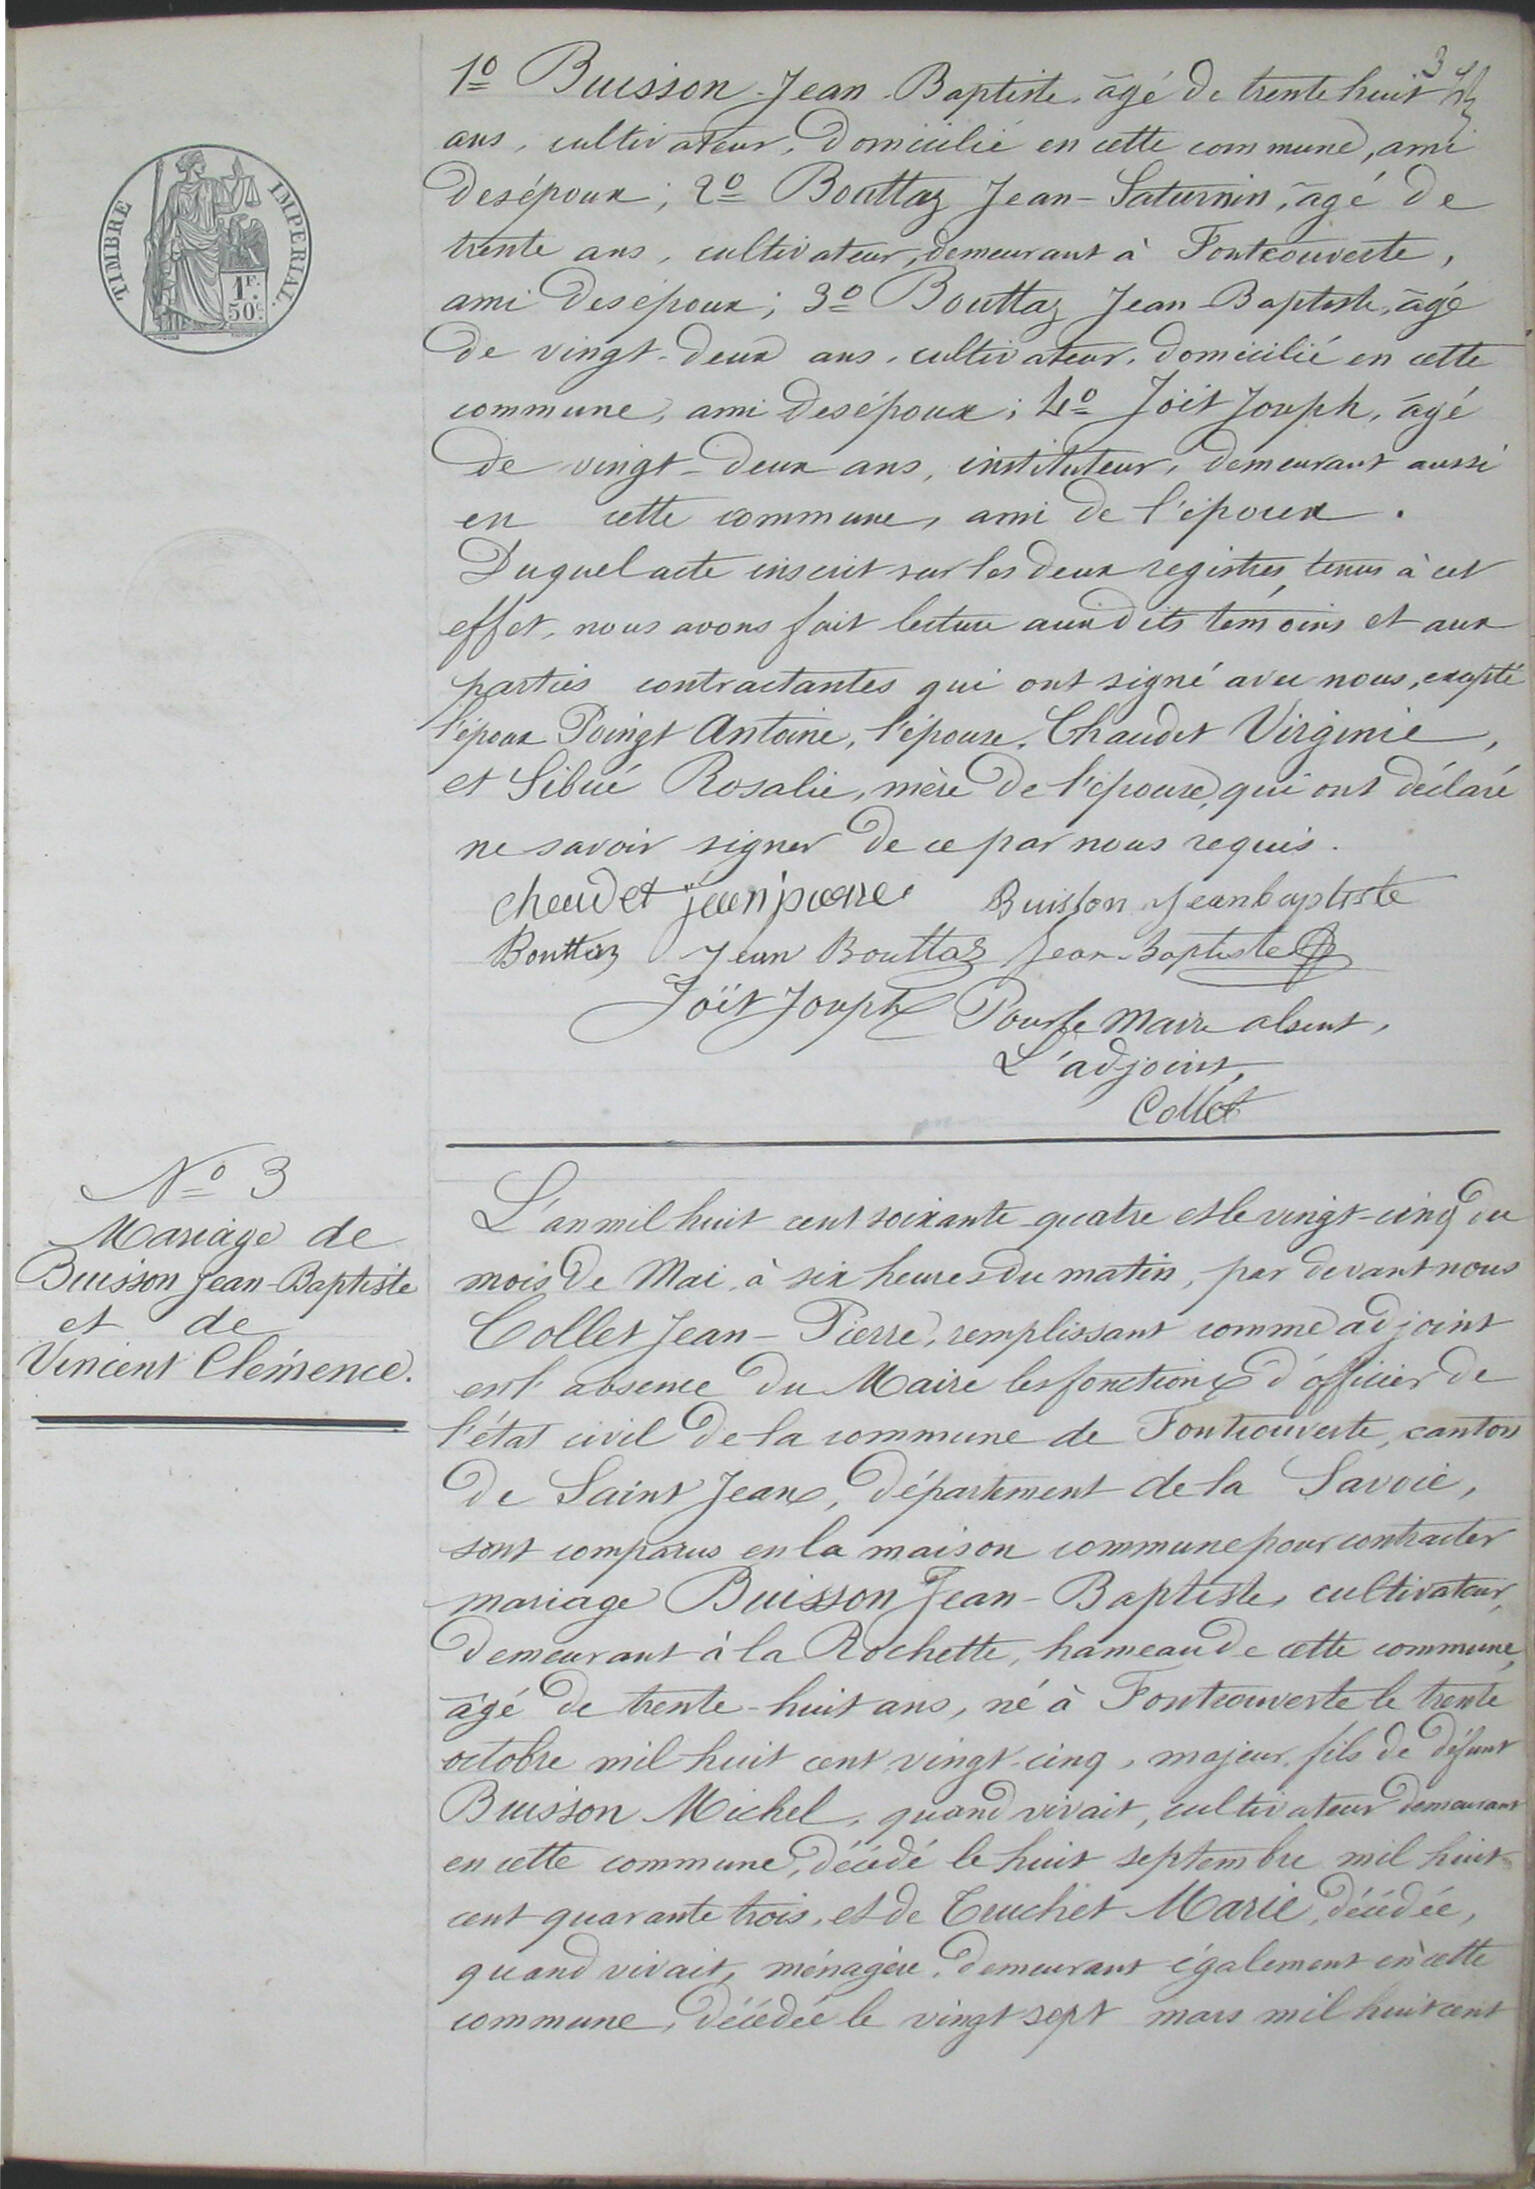 3
1º Buisson Jean-Baptiste, âgé de trente huit
ans, cultivateur, domicilié en cette commune, ami
des époux; 2º Bouttaz Jean-Saturnin, âgé de
trente ans, cultivateur, demeurant à Fontcouverte,
ami des époux; 3º Bouttaz Jean-Baptiste, âgé
de vingt-deux ans, cultivateur, domicilié en cette
commune, ami des époux; 4º Joët Joseph, âgé
de vingt-deux ans, instituteur, demeurant aussi
en cette commune, ami de l'époux.
Duquel acte inscrit sur les deux registres tenus à cet
effet, nous avons fait lecture auxdits témoins et aux
parties contractantes qui ont signé avec nous, excepté
l'époux Poingt Antoine, l'épouse, Chaudet Virginie,
et Sibué Rosalie, mère de l'épouse, qui ont déclaré
ne savoir signer de ce par nous requis.
chaudet jean pierre Buisson Jean baptiste
Bouttaz Jean Bouttaz Jean-Baptiste
Joët Joseph Pour le Maire absent,
L'adjoint,
Collet
TIMBRE IMPERIAL.
1F.
50c.
Nº 3
Mariage de
Buisson Jean-Baptiste
et de
Vincent Clémence.
L'an mil huit cent soixante-quatre et le vingt-cinq du
mois de Mai à six heures du matin, par devant nous
Collet Jean-Pierre, remplissant comme adjoint
en l'absence du Maire les fonctions d'officier de
l'état civil de la commune de Fontcouverte, canton
de Saint Jean, département de la Savoie,
sont comparus en la maison commune pour contracter
mariage Buisson Jean-Baptiste, cultivateur,
demeurant à la Rochette, hameau de cette commune,
âgé de trente-huit ans, né à Fontcouverte le trente
octobre mil huit cent vingt-cinq, majeur, fils de défunt
Buisson Michel, quand vivait, cultivateur demeurant
en cette commune, décédé le huit septembre mil huit
cent quarante trois, et de Truchet Marie, décédée,
quand vivait, ménagère, demeurant également en cette
commune, décédée le vingt sept mars mil huit cent